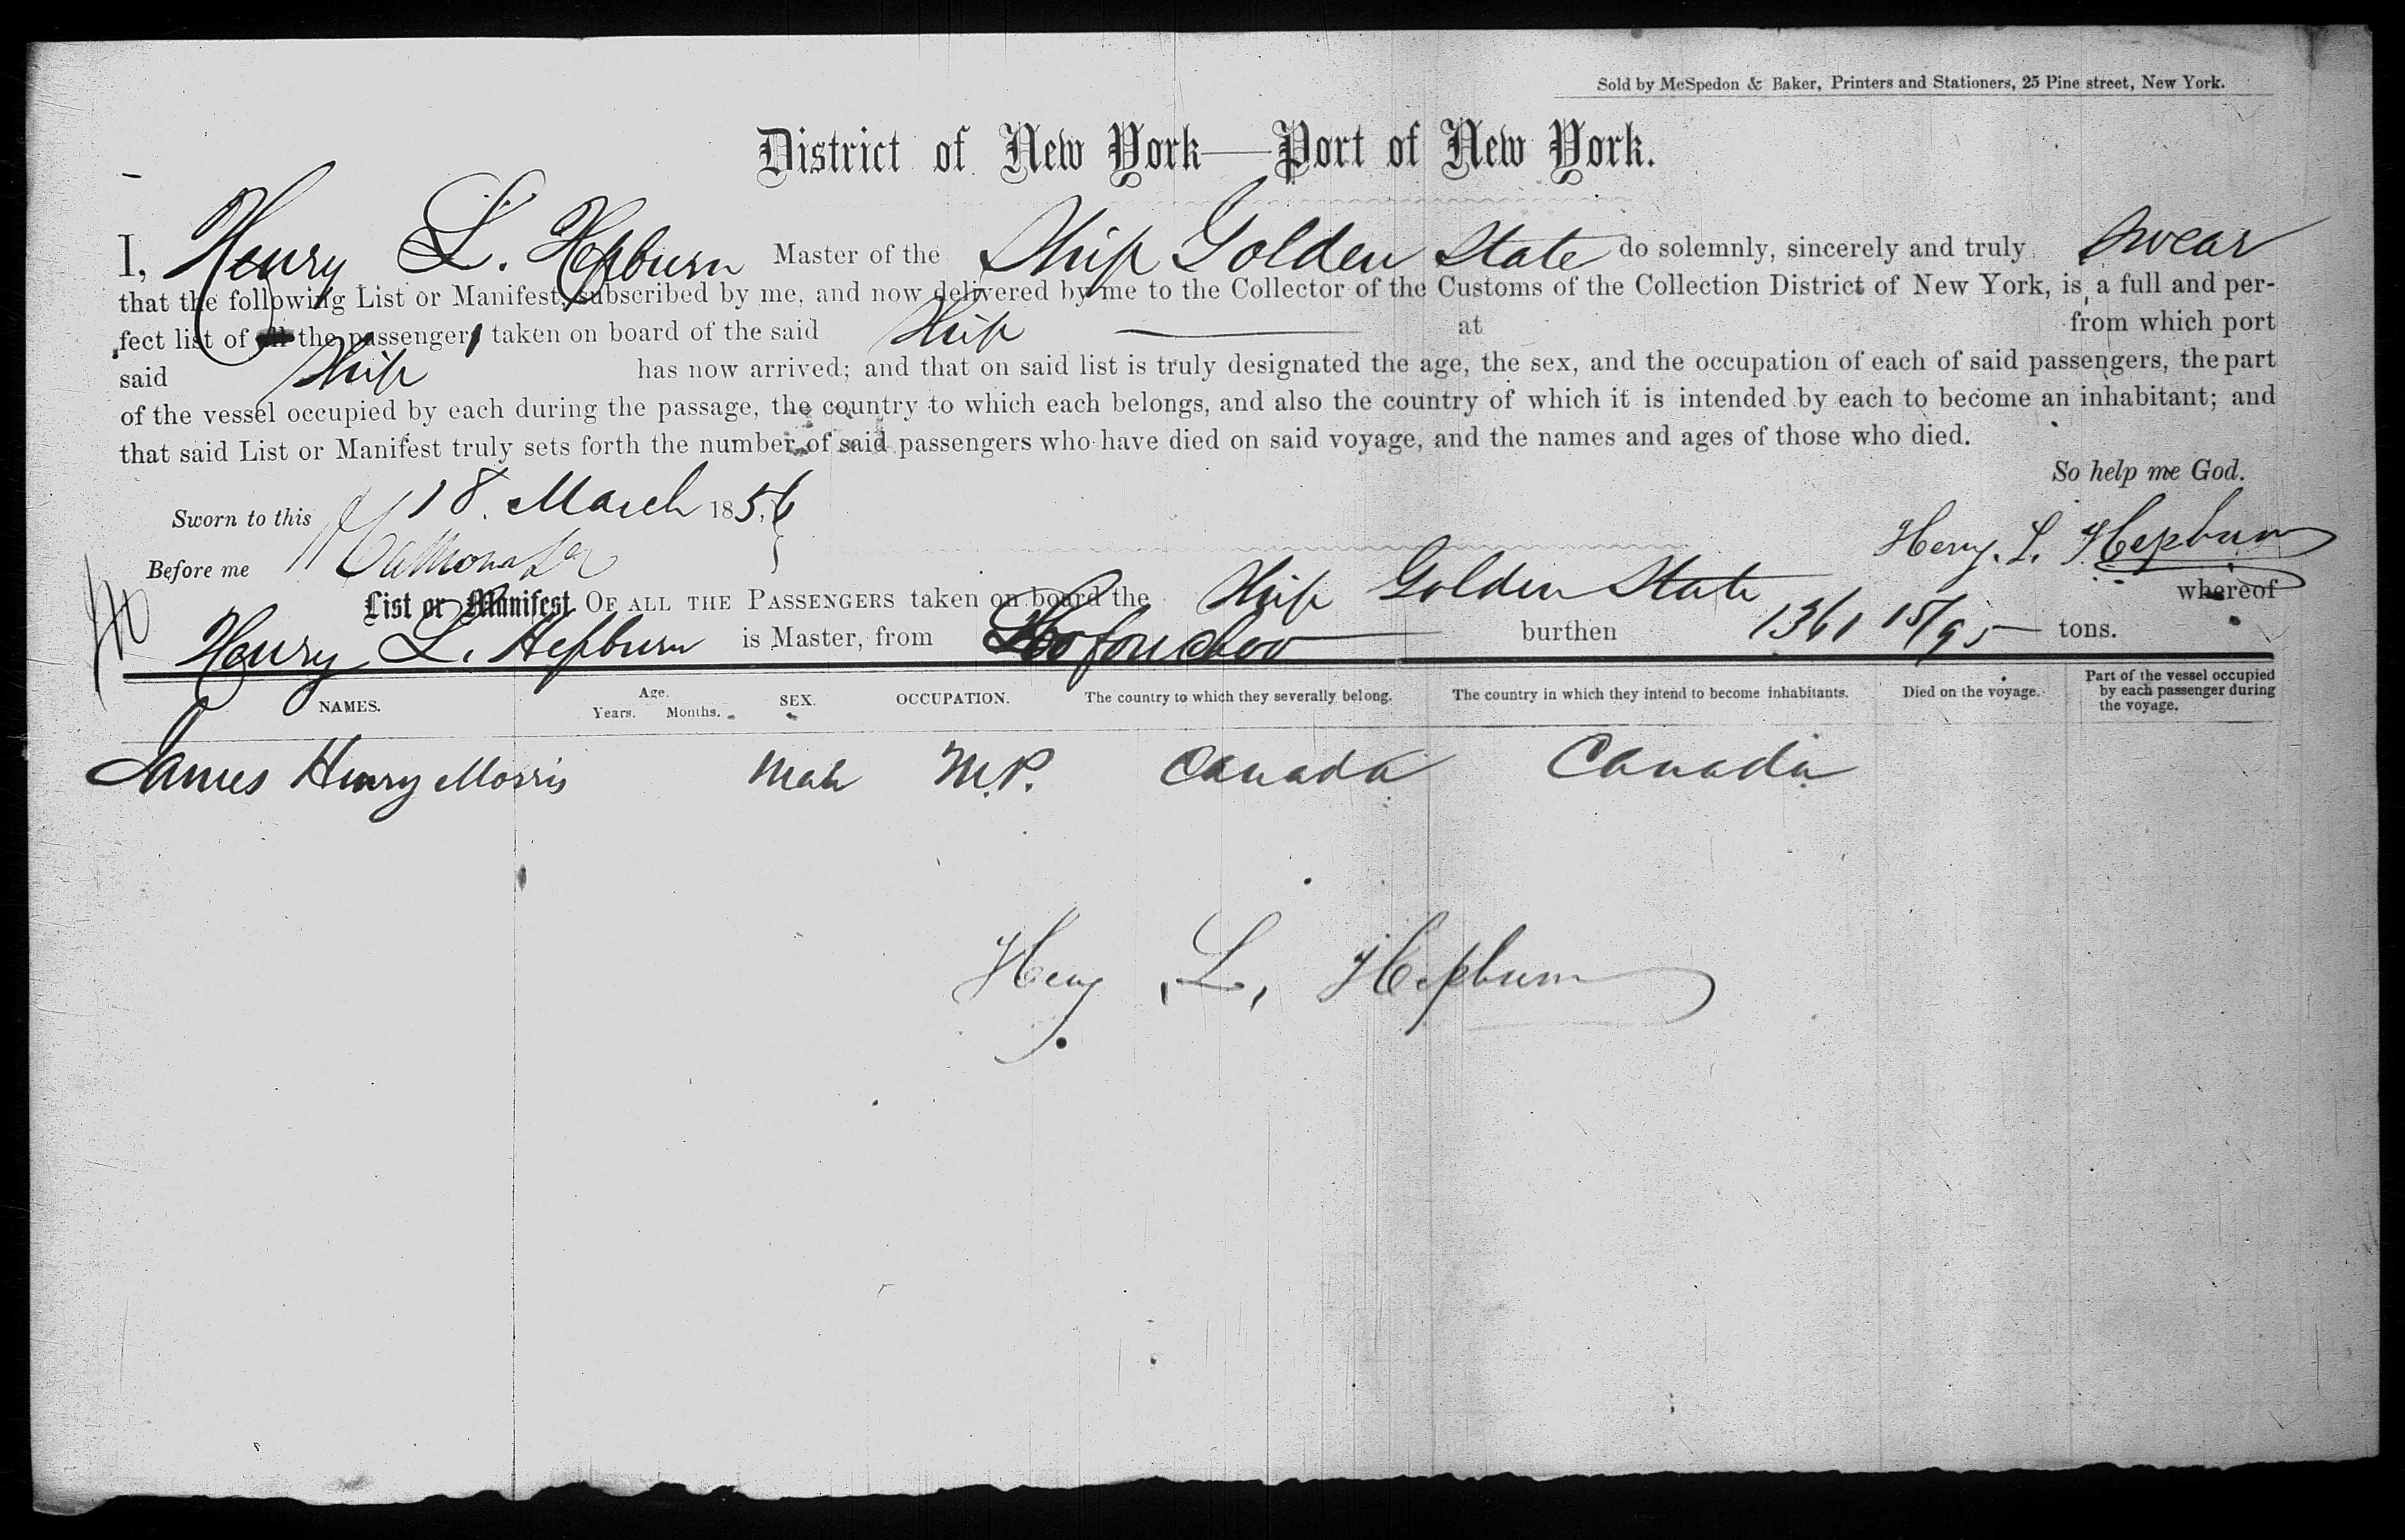 Sold by McSpedon & Baker, Printers and Stationers, 25 Pine street, New York.
District of New York—Port of New York.
I, Henry L. Hepburn Master of the Ship Golden State do solemnly, sincerely and truly swear
that the following List or Manifest, subscribed by me, and now delivered by me to the Collector of the Customs of the Collection District of New York, is a full and per-
fect list of all the passenger taken on board of the said Ship — at from which port
said Ship has now arrived; and that on said list is truly designated the age, the sex, and the occupation of each of said passengers, the part
of the vessel occupied by each during the passage, the country to which each belongs, and also the country of which it is intended by each to become an inhabitant; and
that said List or Manifest truly sets forth the number of said passengers who have died on said voyage, and the names and ages of those who died.
So help me God.
Sworn to this 18. March 1856
Before me
Henry. L. Hepburn
List or Manifest OF ALL THE PASSENGERS taken on board the Ship Golden State whereof
Henry L. Hepburn is Master, from burthen 1361 15/95 tons.
NAMES. Age. Years. Months. SEX. OCCUPATION. The country to which they severally belong. The country in which they intend to become inhabitants. Died on the voyage. Part of the vessel occupied by each passenger during the voyage.
James Henry Morris Male M.P. Canada Canada
Henry L. Hepburn